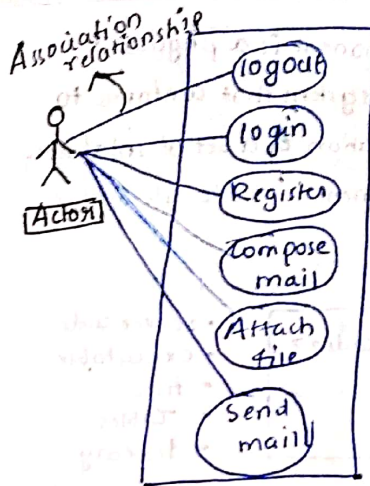 Association
relationship
logout
login
Actor
Register
Compose
mail
Attach
file
Send
mail